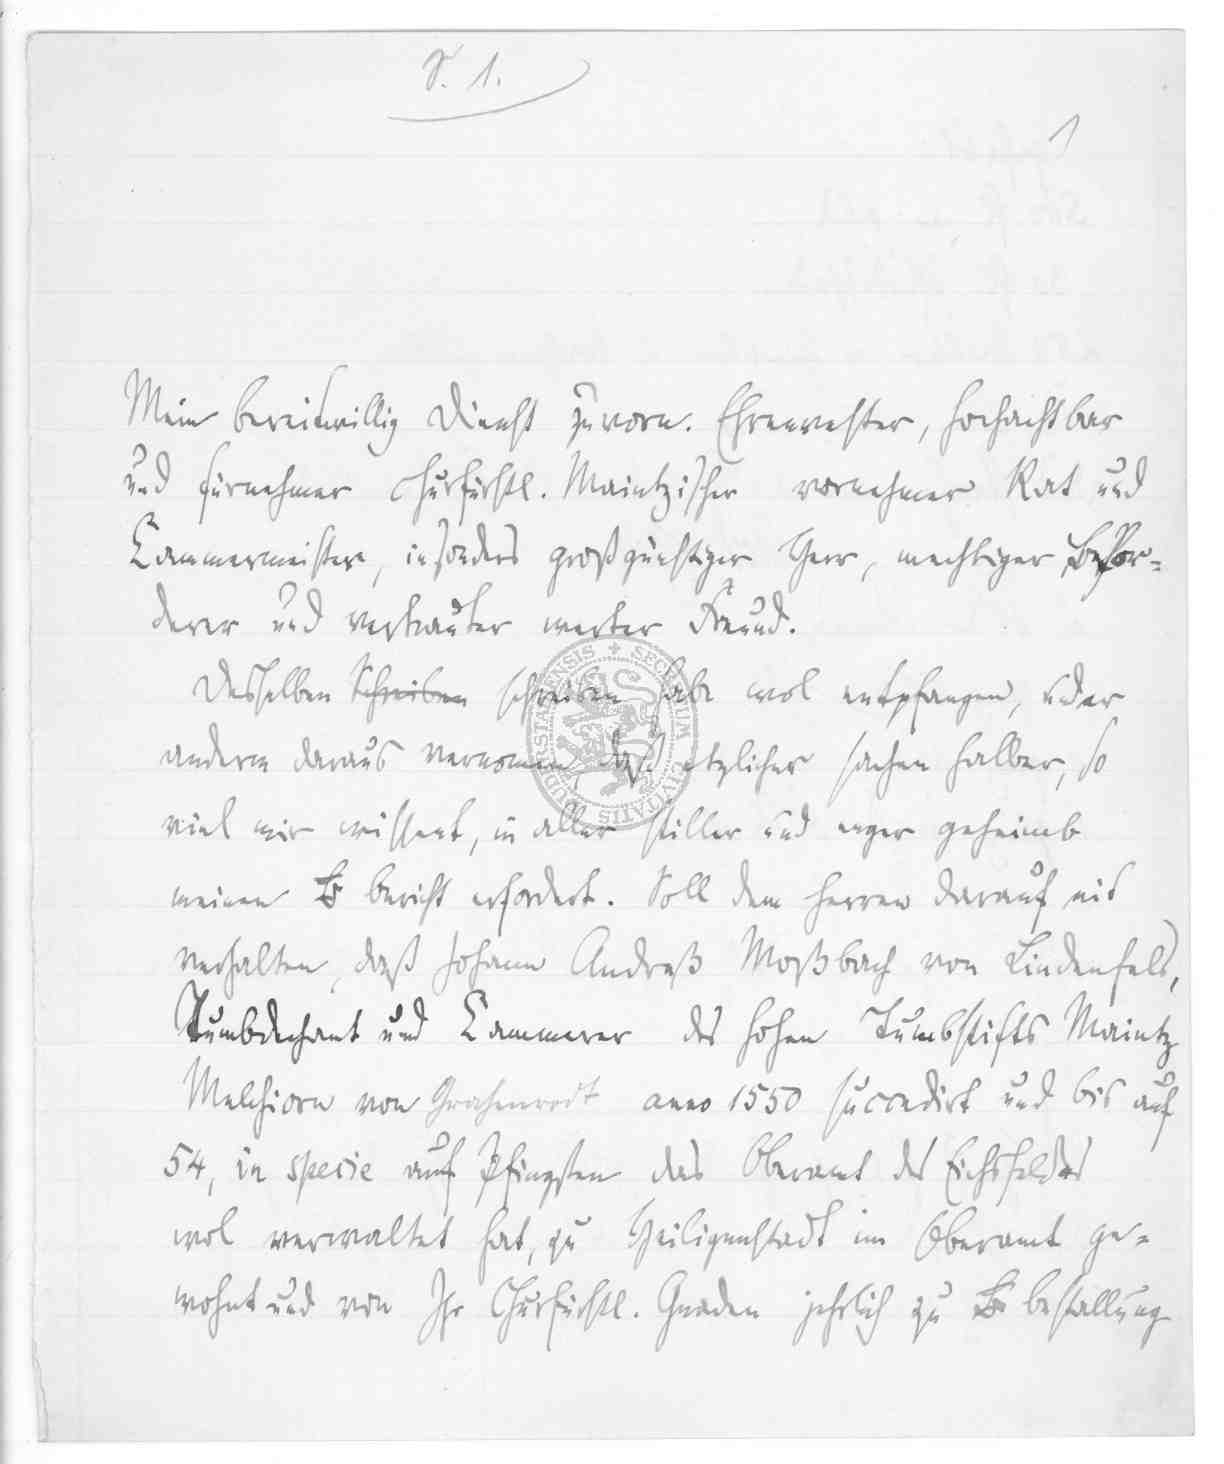 S. 1.
1
Mein bereitwillig Dienst zuvorn. Ehrenvester, hochachtbar
und fürnehmer Churfürstl. Maintzischer vornehmer Rat und
Cammermeister, insonders großgünstiger Herr, mechtiger Beför-
derer und vertrauter werter Freund.
Desselben Schreiben schreiben habe wol entpfangen, under
anderm daraus vernomen, daß etzlicher sachen halber, so
viel mir wissent, in aller stiller und enger geheimb
meinen B bericht erfordert. Soll dem Herren darauf nit
verhalten, daß Johann Andreß Moßbach von Lindenfels,
Tumbdechant und Cammerer des hohen Tumbstifts Maintz
Melchiorn von Grahenrodt anno 1550 succedirt und bis auf
54, in specie auf Pfingsten das Oberamt des Eichsfeldes
wol verwaltet hat, zu Heiligenstadt im Oberamt ge-
wohnt und von Ihr Churfürstl. Gnaden jehrlich zu B bestallung
SIGILLUM SECRETUM CIVITATIS DUDERSTADENSIS